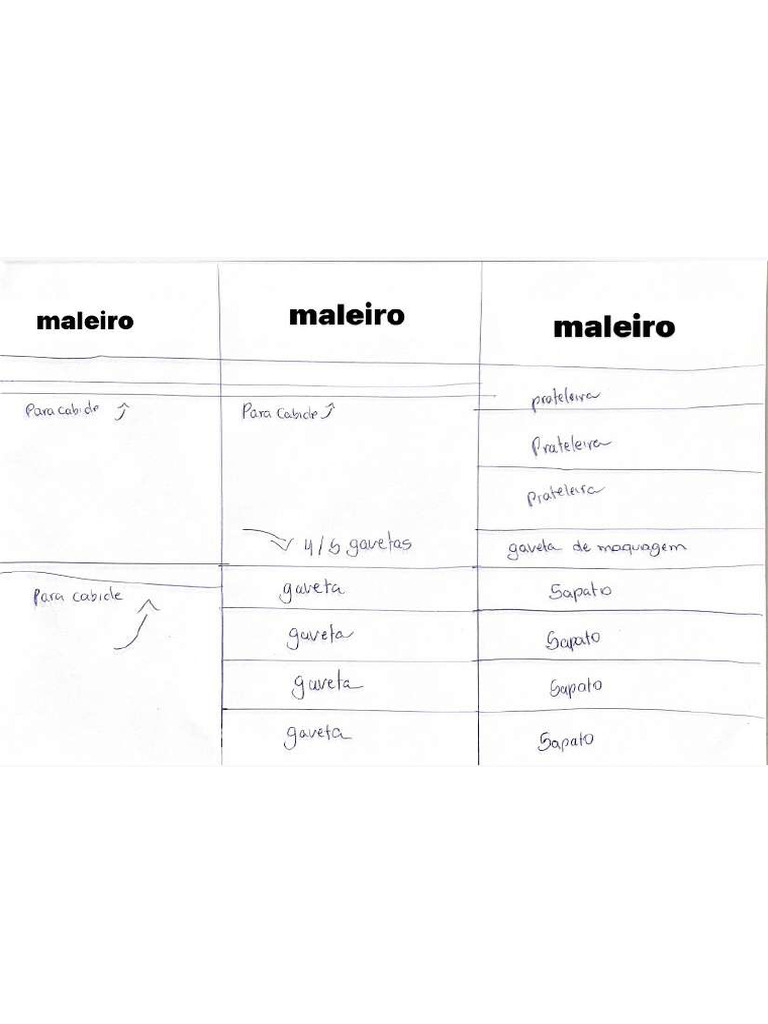 maleiro
maleiro
maleiro
Para cabide
Para cabide
prateleira
Prateleira
prateleira
4/5 gavetas
gaveta de maquagem
Para cabide
gaveta
Sapato
gaveta
Sapato
gaveta
Sapato
gaveta
Sapato